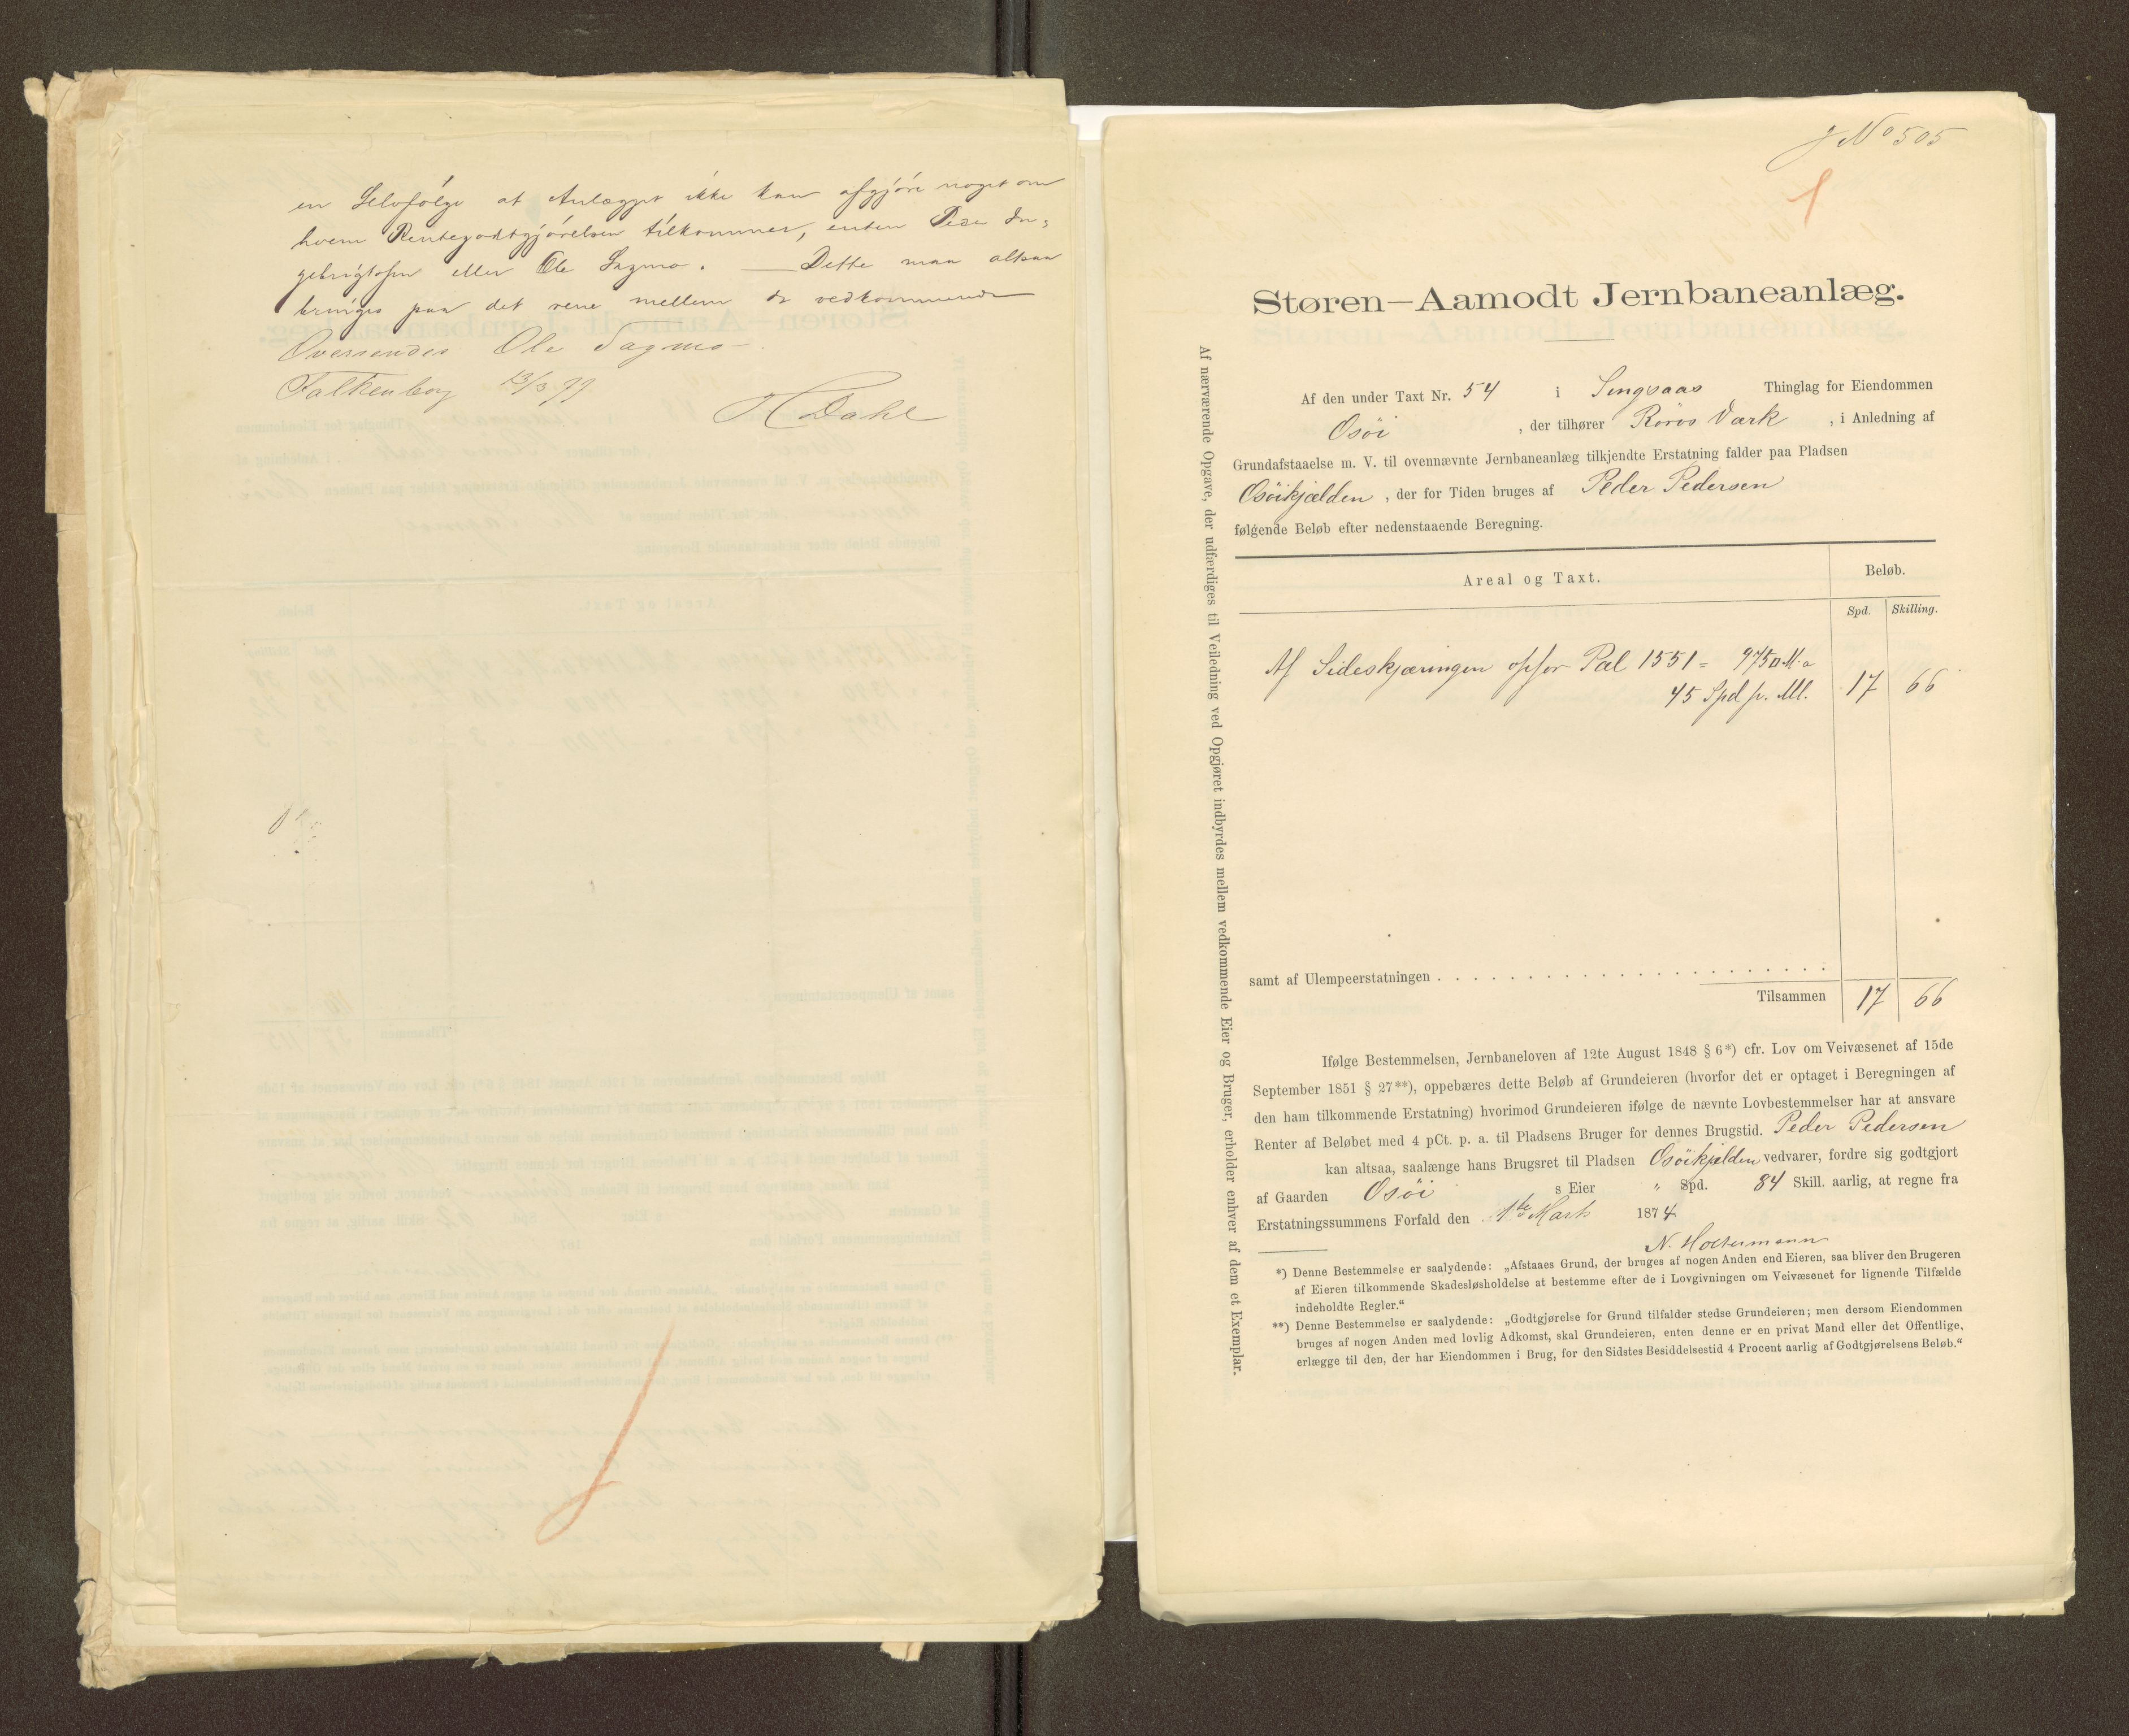 en Selvfølge at Anlægget ikke kan afgjøre noget om
hvem Rentegodtgjørelsen tilkommer, enten Peder In-
gebrigtsen eller Ole Sagmo. — Dette maa altsaa
bringes paa det rene mellem de vedkommende
Oversendes Ole Sagmo.
Falkenborg 13/3 77
H Dahl
J No 505
Støren—Aamodt Jernbaneanlæg.
Af den under Taxt Nr. 54 i Singsaas Thinglag for Eiendommen
Osöi, der tilhører Röros Værk, i Anledning af
Grundafstaaelse m. V. til ovennævnte Jernbaneanlæg tilkjendte Erstatning falder paa Pladsen
Osöikjælden, der for Tiden bruges af Peder Pedersen
følgende Beløb efter nedenstaaende Beregning.
Areal og Taxt. Beløb.
Spd. Skilling.
Af Sideskjæringen opfor Pæl 1551 = 9750 □ M. a
45 Spd p. Ml. 17 66
samt af Ulempeerstatningen . . . . . . . . . . . . . . . . . . . . . . .
Tilsammen 17 66
Ifølge Bestemmelsen, Jernbaneloven af 12te August 1848 § 6*) cfr. Lov om Veivæsenet af 15de
September 1851 § 27**), oppebæres dette Beløb af Grundeieren (hvorfor det er optaget i Beregningen af
den ham tilkommende Erstatning) hvorimod Grundeieren ifølge de nævnte Lovbestemmelser har at ansvare
Renter af Beløbet med 4 pCt. p. a. til Pladsens Bruger for dennes Brugstid. Peder Pedersen
kan altsaa, saalænge hans Brugsret til Pladsen Osöikjælden vedvarer, fordre sig godtgjort
af Gaarden Osöi s Eier " Spd. 84 Skill. aarlig, at regne fra
Erstatningssummens Forfald den 1te Marts 1874
N. Holtermann
*) Denne Bestemmelse er saalydende: „Afstaaes Grund, der bruges af nogen Anden end Eieren, saa bliver den Brugeren
af Eieren tilkommende Skadesløsholdelse at bestemme efter de i Lovgivningen om Veivæsenet for lignende Tilfælde
indeholdte Regler.“
**) Denne Bestemmelse er saalydende: „Godtgjørelse for Grund tilfalder stedse Grundeieren; men dersom Eiendommen
bruges af nogen Anden med lovlig Adkomst, skal Grundeieren, enten denne er en privat Mand eller det Offentlige,
erlægge til den, der har Eiendommen i Brug, for den Sidstes Besiddelsestid 4 Procent aarlig af Godtgjørelsens Beløb.“
Af nærværende Opgave, der udfærdiges til Veiledning ved Opgjøret indbyrdes mellem vedkommende Eier og Bruger, erholder enhver af dem et Exemplar.